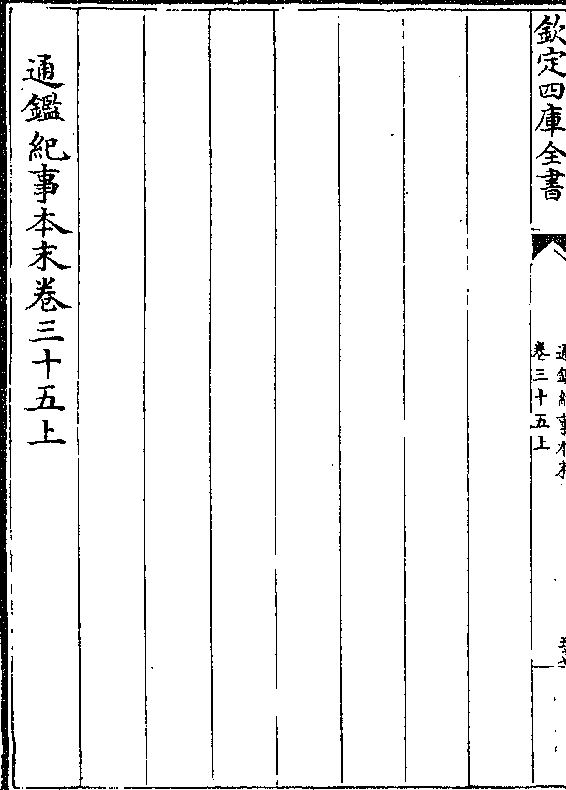 欽定四庫全書
通鑑紀事本末
卷三十五上
通鑑紀事本末卷三十五上